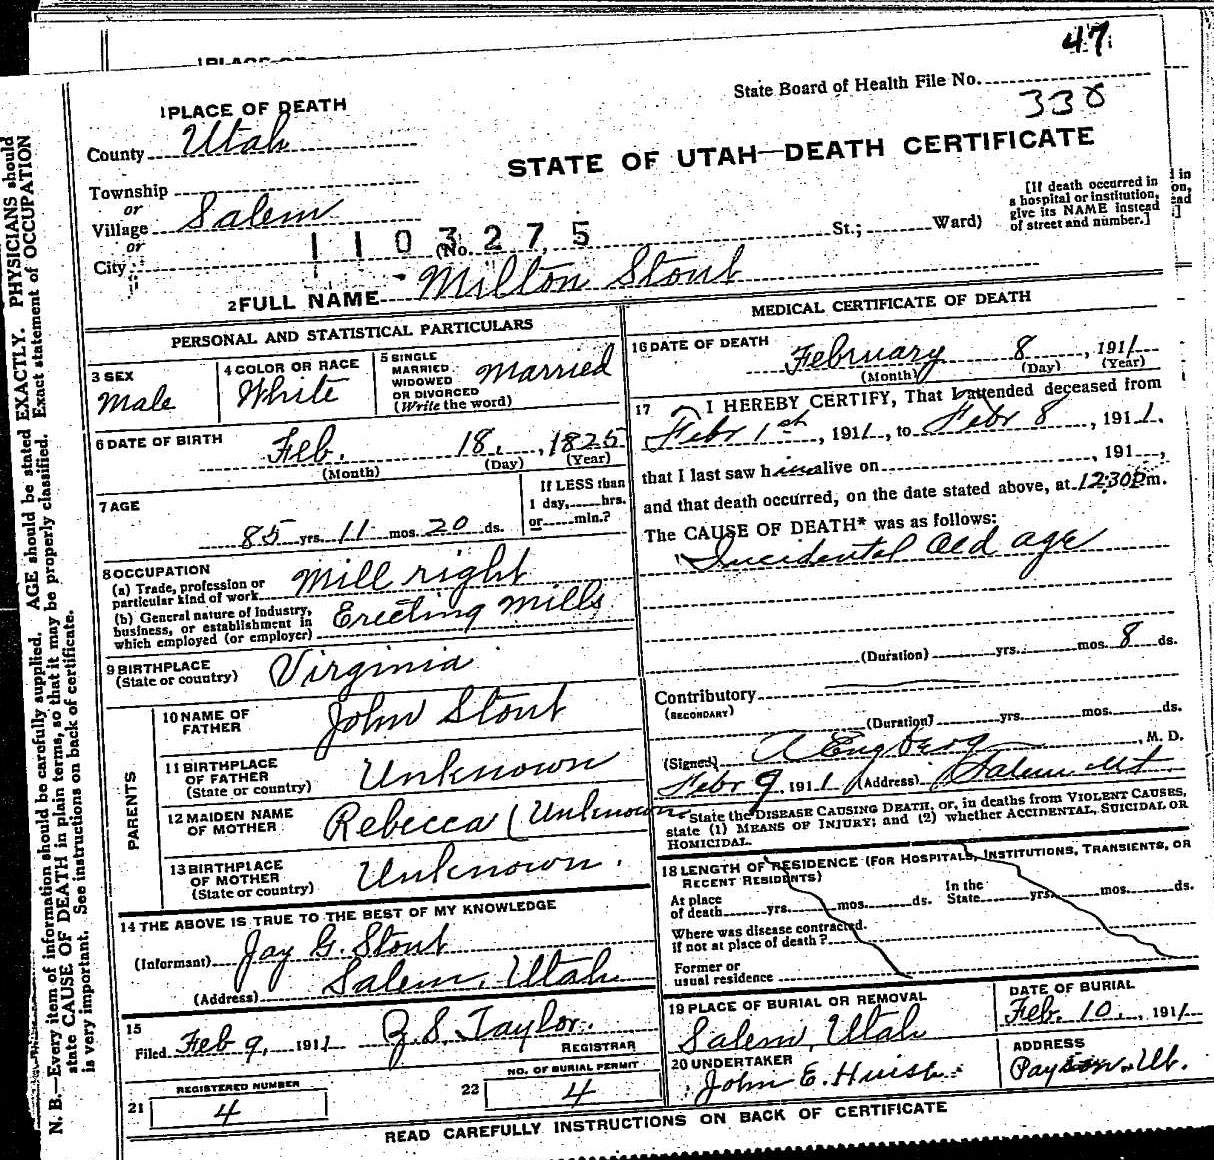 47
State Board of Health File No.
338
1 PLACE OF DEATH
County Utah
STATE OF UTAH—DEATH CERTIFICATE
Township
or
Village Salem
or
City
1103275
(No. St.; Ward)
[If death occurred in
a hospital or institution,
give its NAME instead
of street and number.]
2 FULL NAME Milton Stout
PERSONAL AND STATISTICAL PARTICULARS
3 SEX
Male
4 COLOR OR RACE
White
5 SINGLE
MARRIED
WIDOWED
OR DIVORCED
(Write the word)
Married
6 DATE OF BIRTH
Feb. 18, 1825
(Month) (Day) (Year)
7 AGE
85 yrs. 11 mos. 20 ds.
If LESS than
1 day, hrs.
or min.?
8 OCCUPATION
(a) Trade, profession or
particular kind of work Mill right
(b) General nature of Industry,
business, or establishment in
which employed (or employer) Erecting Mills
9 BIRTHPLACE
(State or country) Virginia
PARENTS
10 NAME OF
FATHER John Stout
11 BIRTHPLACE
OF FATHER
(State or country) Unknown
12 MAIDEN NAME
OF MOTHER Rebecca (Unknown
13 BIRTHPLACE
OF MOTHER
(State or country) Unknown.
14 THE ABOVE IS TRUE TO THE BEST OF MY KNOWLEDGE
(Informant) Jay G. Stout
(Address) Salem, Utah
15
Filed Feb 9, 1911 Z. S. Taylor.
REGISTRAR
REGISTERED NUMBER
21 4
NO. OF BURIAL PERMIT
22 4
MEDICAL CERTIFICATE OF DEATH
16 DATE OF DEATH
February 8, 1911
(Month) (Day) (Year)
17 I HEREBY CERTIFY, That I attended deceased from
Febr 1st, 1911, to Febr 8, 1911,
that I last saw him alive on , 191 ,
and that death occurred, on the date stated above, at 12:30 P m.
The CAUSE OF DEATH* was as follows:
Incidental Old age
(Duration) yrs. mos. 8 ds.
Contributory
(SECONDARY)
(Duration) yrs. mos. ds.
(Signed) A Engberg, M. D.
Febr 9 1911 (Address) Salem Ut
State the DISEASE CAUSING DEATH, or, in deaths from VIOLENT CAUSES,
state (1) MEANS OF INJURY; and (2) whether ACCIDENTAL, SUICIDAL OR
HOMICIDAL.
18 LENGTH OF RESIDENCE (FOR HOSPITALS, INSTITUTIONS, TRANSIENTS, OR
RECENT RESIDENTS)
At place
of death yrs. mos. ds.
In the
State yrs. mos. ds.
Where was disease contracted.
if not at place of death?
Former or
usual residence
19 PLACE OF BURIAL OR REMOVAL
Salem, Utah
DATE OF BURIAL
Feb. 10., 1911
20 UNDERTAKER
John E. Huish
ADDRESS
Payson. Ut.
READ CAREFULLY INSTRUCTIONS ON BACK OF CERTIFICATE
N. B.—Every item of information should be carefully supplied. AGE should be stated EXACTLY. PHYSICIANS should
state CAUSE OF DEATH in plain terms, so that it may be properly classified. Exact statement of OCCUPATION
is very important. See instructions on back of certificate.